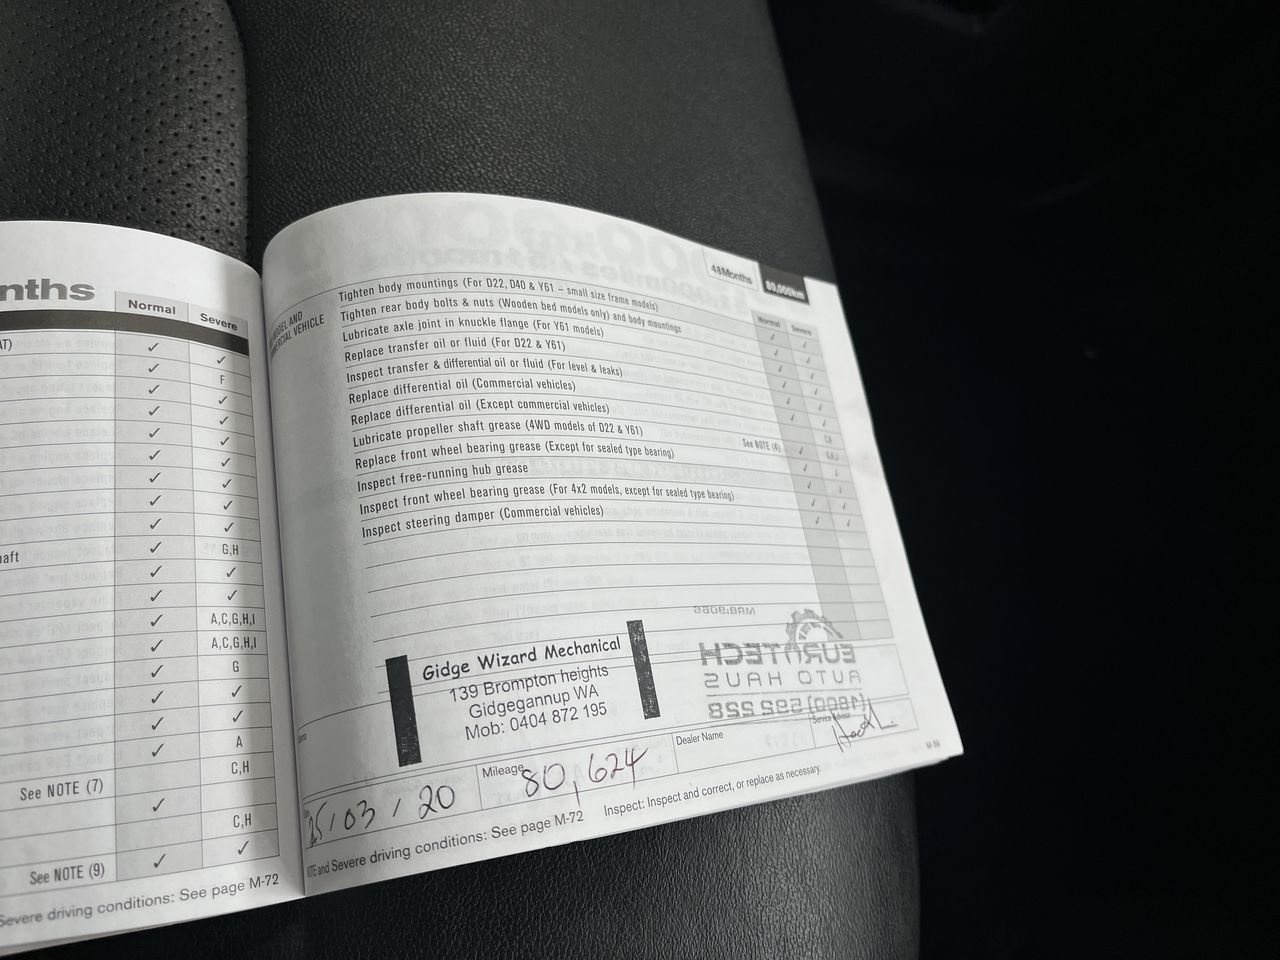 nths
Normal
Severe
AT)
F
haft
G,H
A,C,G,H,I
A,C,G,H,I
G
A
C,H
See NOTE (7)
C,H
See NOTE (9)
Severe driving conditions: See page M-72
48Months
80,000km
Normal
Severe
MODEL AND
VEHICLE
Tighten body mountings (For D22, D40 & Y61 – small size frame models)
Tighten rear body bolts & nuts (Wooden bed models only) and body mountings
Lubricate axle joint in knuckle flange (For Y61 models)
Replace transfer oil or fluid (For D22 & Y61)
Inspect transfer & differential oil or fluid (For level & leaks)
Replace differential oil (Commercial vehicles)
Replace differential oil (Except commercial vehicles)
Lubricate propeller shaft grease (4WD models of D22 & Y61)
Replace front wheel bearing grease (Except for sealed type bearing)
See NOTE (4)
Inspect free-running hub grease
Inspect front wheel bearing grease (For 4x2 models, except for sealed type bearing)
Inspect steering damper (Commercial vehicles)
Gidge Wizard Mechanical
139 Brompton heights
Gidgegannup WA
Mob: 0404 872 195
EUROTECH
AUTO HAUS
(1800) 592 228
25/03/20
Mileage
80,624
Dealer Name
Service Advisor
and Severe driving conditions: See page M-72
Inspect: Inspect and correct, or replace as necessary.